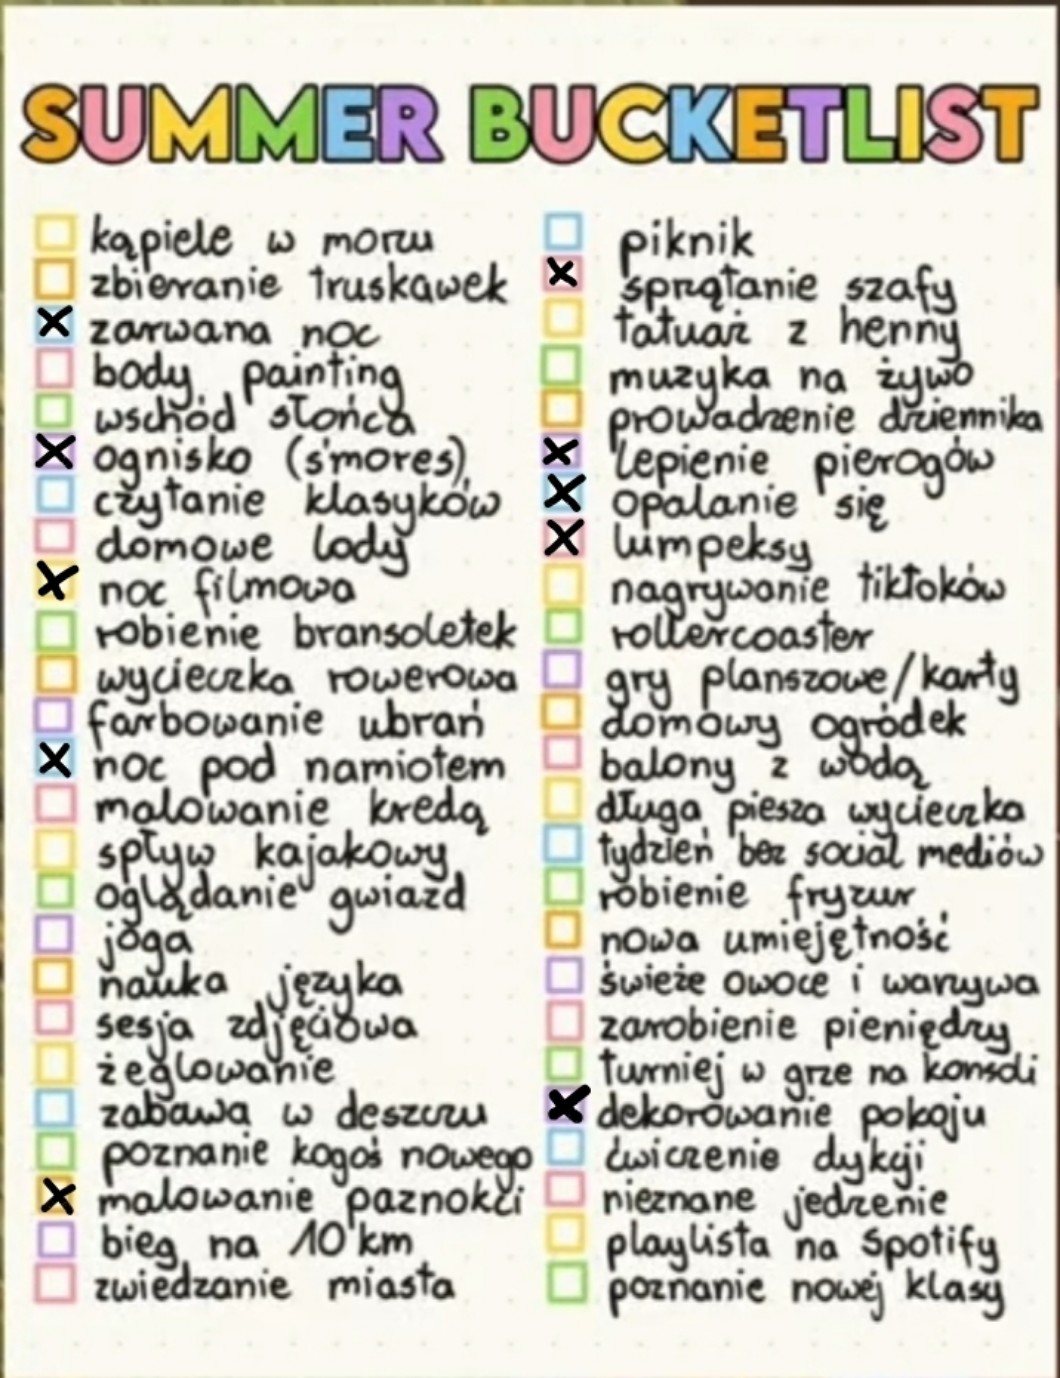 SUMMER BUCKETLIST
kąpiele w morzu
zbieranie truskawek
zarwana noc
body painting
wschód słońca
ognisko (s'mores)
czytanie klasyków
domowe lody
noc filmowa
robienie bransoletek
wycieczka rowerowa
farbowanie ubrań
noc pod namiotem
malowanie kredą
spływ kajakowy
oglądanie gwiazd
joga
nauka języka
sesja zdjęciowa
żeglowanie
zabawa w deszczu
poznanie kogoś nowego
malowanie paznokci
bieg na 10 km
zwiedzanie miasta
piknik
sprzątanie szafy
tatuaż z henny
muzyka na żywo
prowadzenie dziennika
lepienie pierogów
opalanie się
lumpeksy
nagrywanie tiktoków
rollercoaster
gry planszowe/karty
domowy ogródek
balony z wodą
długa piesza wycieczka
tydzień bez social mediów
robienie fryzur
nowa umiejętność
świeże owoce i warzywa
zarobienie pieniędzy
turniej w grze na konsoli
dekorowanie pokoju
ćwiczenie dykcji
nieznane jedzenie
playlista na spotify
poznanie nowej klasy